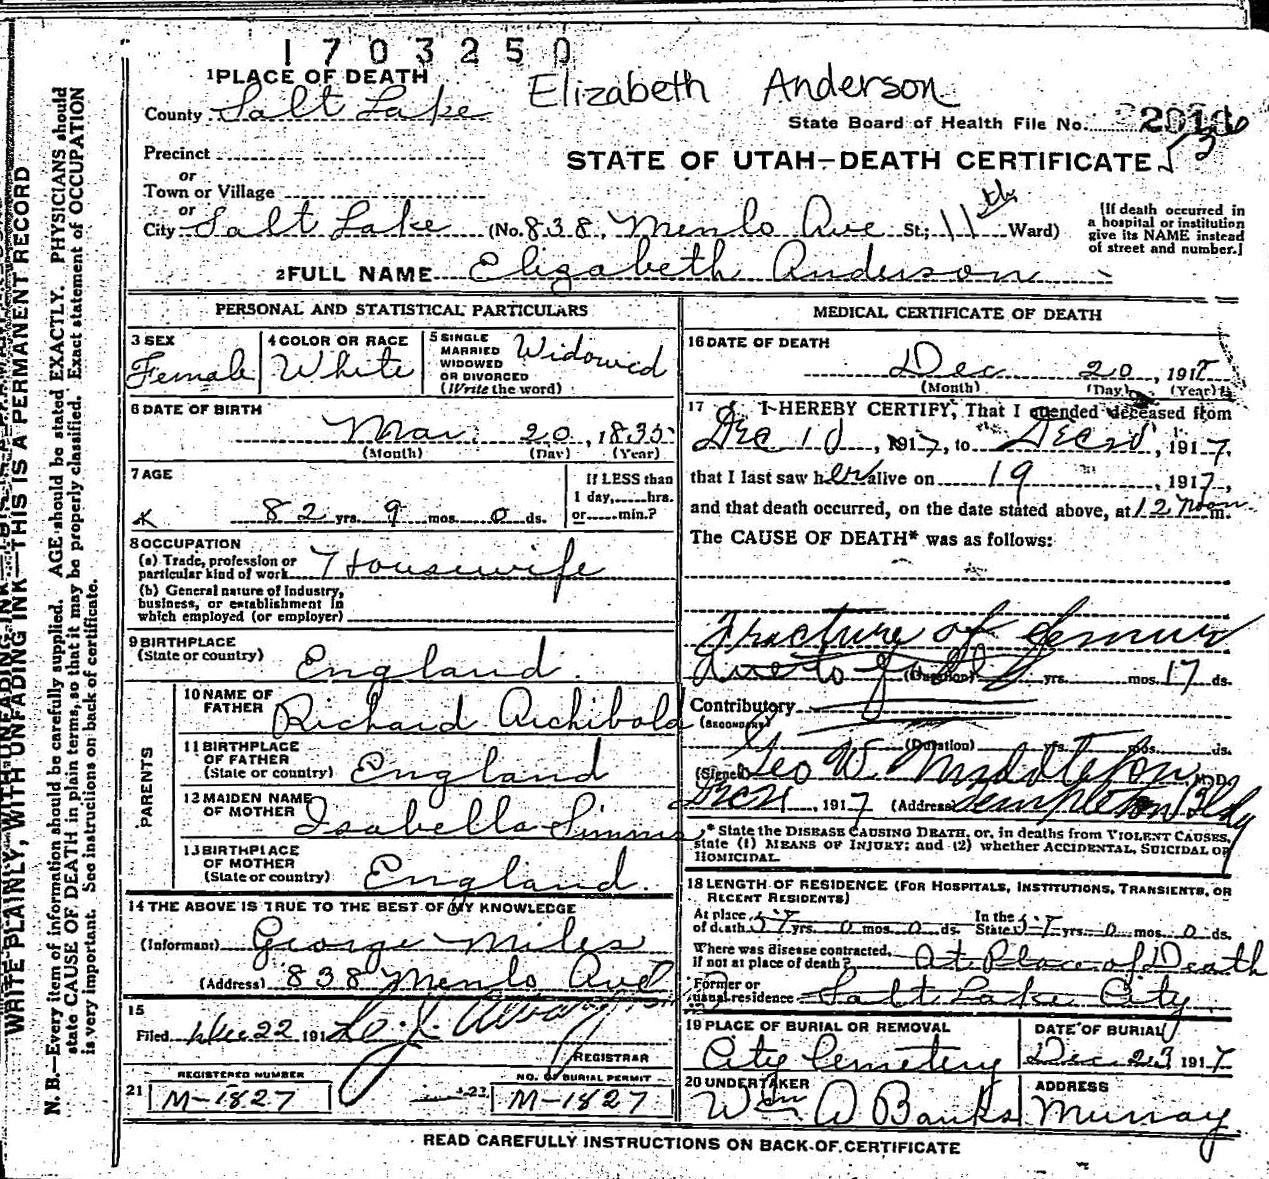 1703250
Elizabeth Anderson
1 PLACE OF DEATH
County Salt Lake
State Board of Health File No.
Precinct
or
Town or Village
or
STATE OF UTAH—DEATH CERTIFICATE
City Salt Lake (No. 838 Menlo Ave St; 11th Ward)
[If death occurred in
a hospital or institution
give its NAME instead
of street and number.]
2 FULL NAME Elizabeth Anderson
PERSONAL AND STATISTICAL PARTICULARS
3 SEX
Female
4 COLOR OR RACE
White
5 SINGLE
MARRIED
WIDOWED
OR DIVORCED
(Write the word)
Widowed
6 DATE OF BIRTH
Mar. 20, 1835
(Month) (Day) (Year)
7 AGE
82 yrs. 9 mos. 0 ds.
If LESS than
1 day,......hrs.
or......min.?
8 OCCUPATION
(a) Trade, profession or
particular kind of work Housewife
(b) General nature of Industry,
business, or establishment in
which employed (or employer)
9 BIRTHPLACE
(State or country) England
PARENTS
10 NAME OF
FATHER Richard Archibold
11 BIRTHPLACE
OF FATHER
(State or country) England
12 MAIDEN NAME
OF MOTHER Isabella Simms
13 BIRTHPLACE
OF MOTHER
(State or country) England.
14 THE ABOVE IS TRUE TO THE BEST OF MY KNOWLEDGE
(Informant) George Miles
(Address) 838 Menlo Ave
15
Filed Dec 22 191
REGISTRAR
REGISTERED NUMBER
21 M-1827
NO. OF BURIAL PERMIT
22 M-1827
MEDICAL CERTIFICATE OF DEATH
16 DATE OF DEATH
Dec 20, 1917
(Month) (Day) (Year)
17 I HEREBY CERTIFY, That I attended deceased from
Dec 10, 1917, to Dec 20, 1917,
that I last saw her alive on 19, 1917,
and that death occurred, on the date stated above, at 12 Noon m.
The CAUSE OF DEATH* was as follows:
Fracture of femur
due to fall (Duration) yrs. mos. 17 ds.
Contributory
(SECONDARY)
(Duration) yrs. mos. ds.
(Signed) Geo W. Middleton M.D.
Dec 21, 1917 (Address) Templeton Bldg
* State the DISEASE CAUSING DEATH, or, in deaths from VIOLENT CAUSES,
state (1) MEANS OF INJURY; and (2) whether ACCIDENTAL, SUICIDAL OR
HOMICIDAL.
18 LENGTH OF RESIDENCE (FOR HOSPITALS, INSTITUTIONS, TRANSIENTS, OR
RECENT RESIDENTS)
At place
of death 57 yrs. 0 mos. 0 ds.
In the
State 57 yrs. 0 mos. 0 ds.
Where was disease contracted,
if not at place of death? At Place of Death
Former or
usual residence Salt Lake City
19 PLACE OF BURIAL OR REMOVAL
City Cemetery
DATE OF BURIAL
Dec 23 1917
20 UNDERTAKER
Wm D Banks
ADDRESS
Murray
READ CAREFULLY INSTRUCTIONS ON BACK OF CERTIFICATE
WRITE PLAINLY, WITH UNFADING INK—THIS IS A PERMANENT RECORD
N. B.—Every item of information should be carefully supplied. AGE should be stated EXACTLY. PHYSICIANS should
state CAUSE OF DEATH in plain terms, so that it may be properly classified. Exact statement of OCCUPATION
is very important. See instructions on back of certificate.